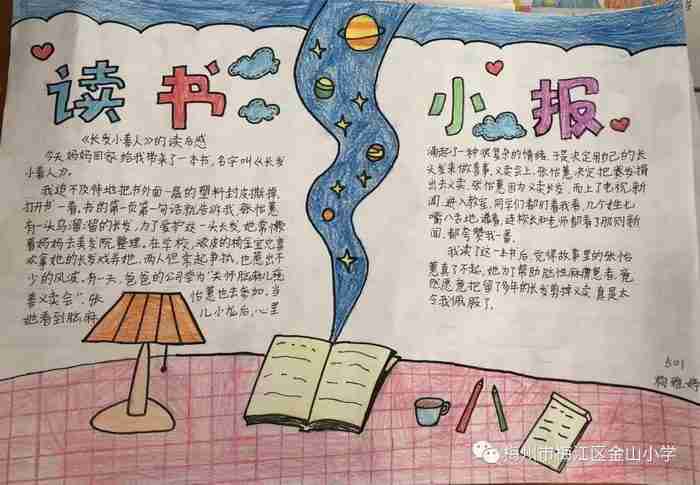 读书
小报
《长发小善人》的读后感
今天妈妈回家给我带来了一本书,名字叫《长发
小善人》。
我迫不及待地把书外面一层的塑料封皮撕掉,
打开书一看,书的第一页第一句话就告诉我,张怡蕙
有一头乌溜溜的长发,为了爱护这一头长发,她常懒
着妈妈去美发院整理。在学校,顽皮的楠宝宝总喜
欢拿她的长发戏弄她,两人但索起争执,也惹出不
少的风波。有一天,爸爸的公司举办"关怀脑麻儿慈
善义卖会",张怡蕙也去参加,当
她看到脑麻儿小龙后,心里
涌起了一种很复杂的情绪,于是决定用自己的长
头发来做善事。义卖会上,张怡蕙决定把长发捐
出去义卖,张怡蕙因为义卖长发,而上了电视新
闻,进入教室,同学们都盯着我看,几个姓七
嘴八舌地讲着,连校长和老师都看了那则新
闻,都夸赞我一番。
我读了这一本书后,觉得故事里的张怡
蕙真了不起,她为了帮助脑性麻痹患者,竟
然愿意把留了多年的长发剪掉义卖,真是太
令我佩服了。
501
梅州市梅江区金山小学